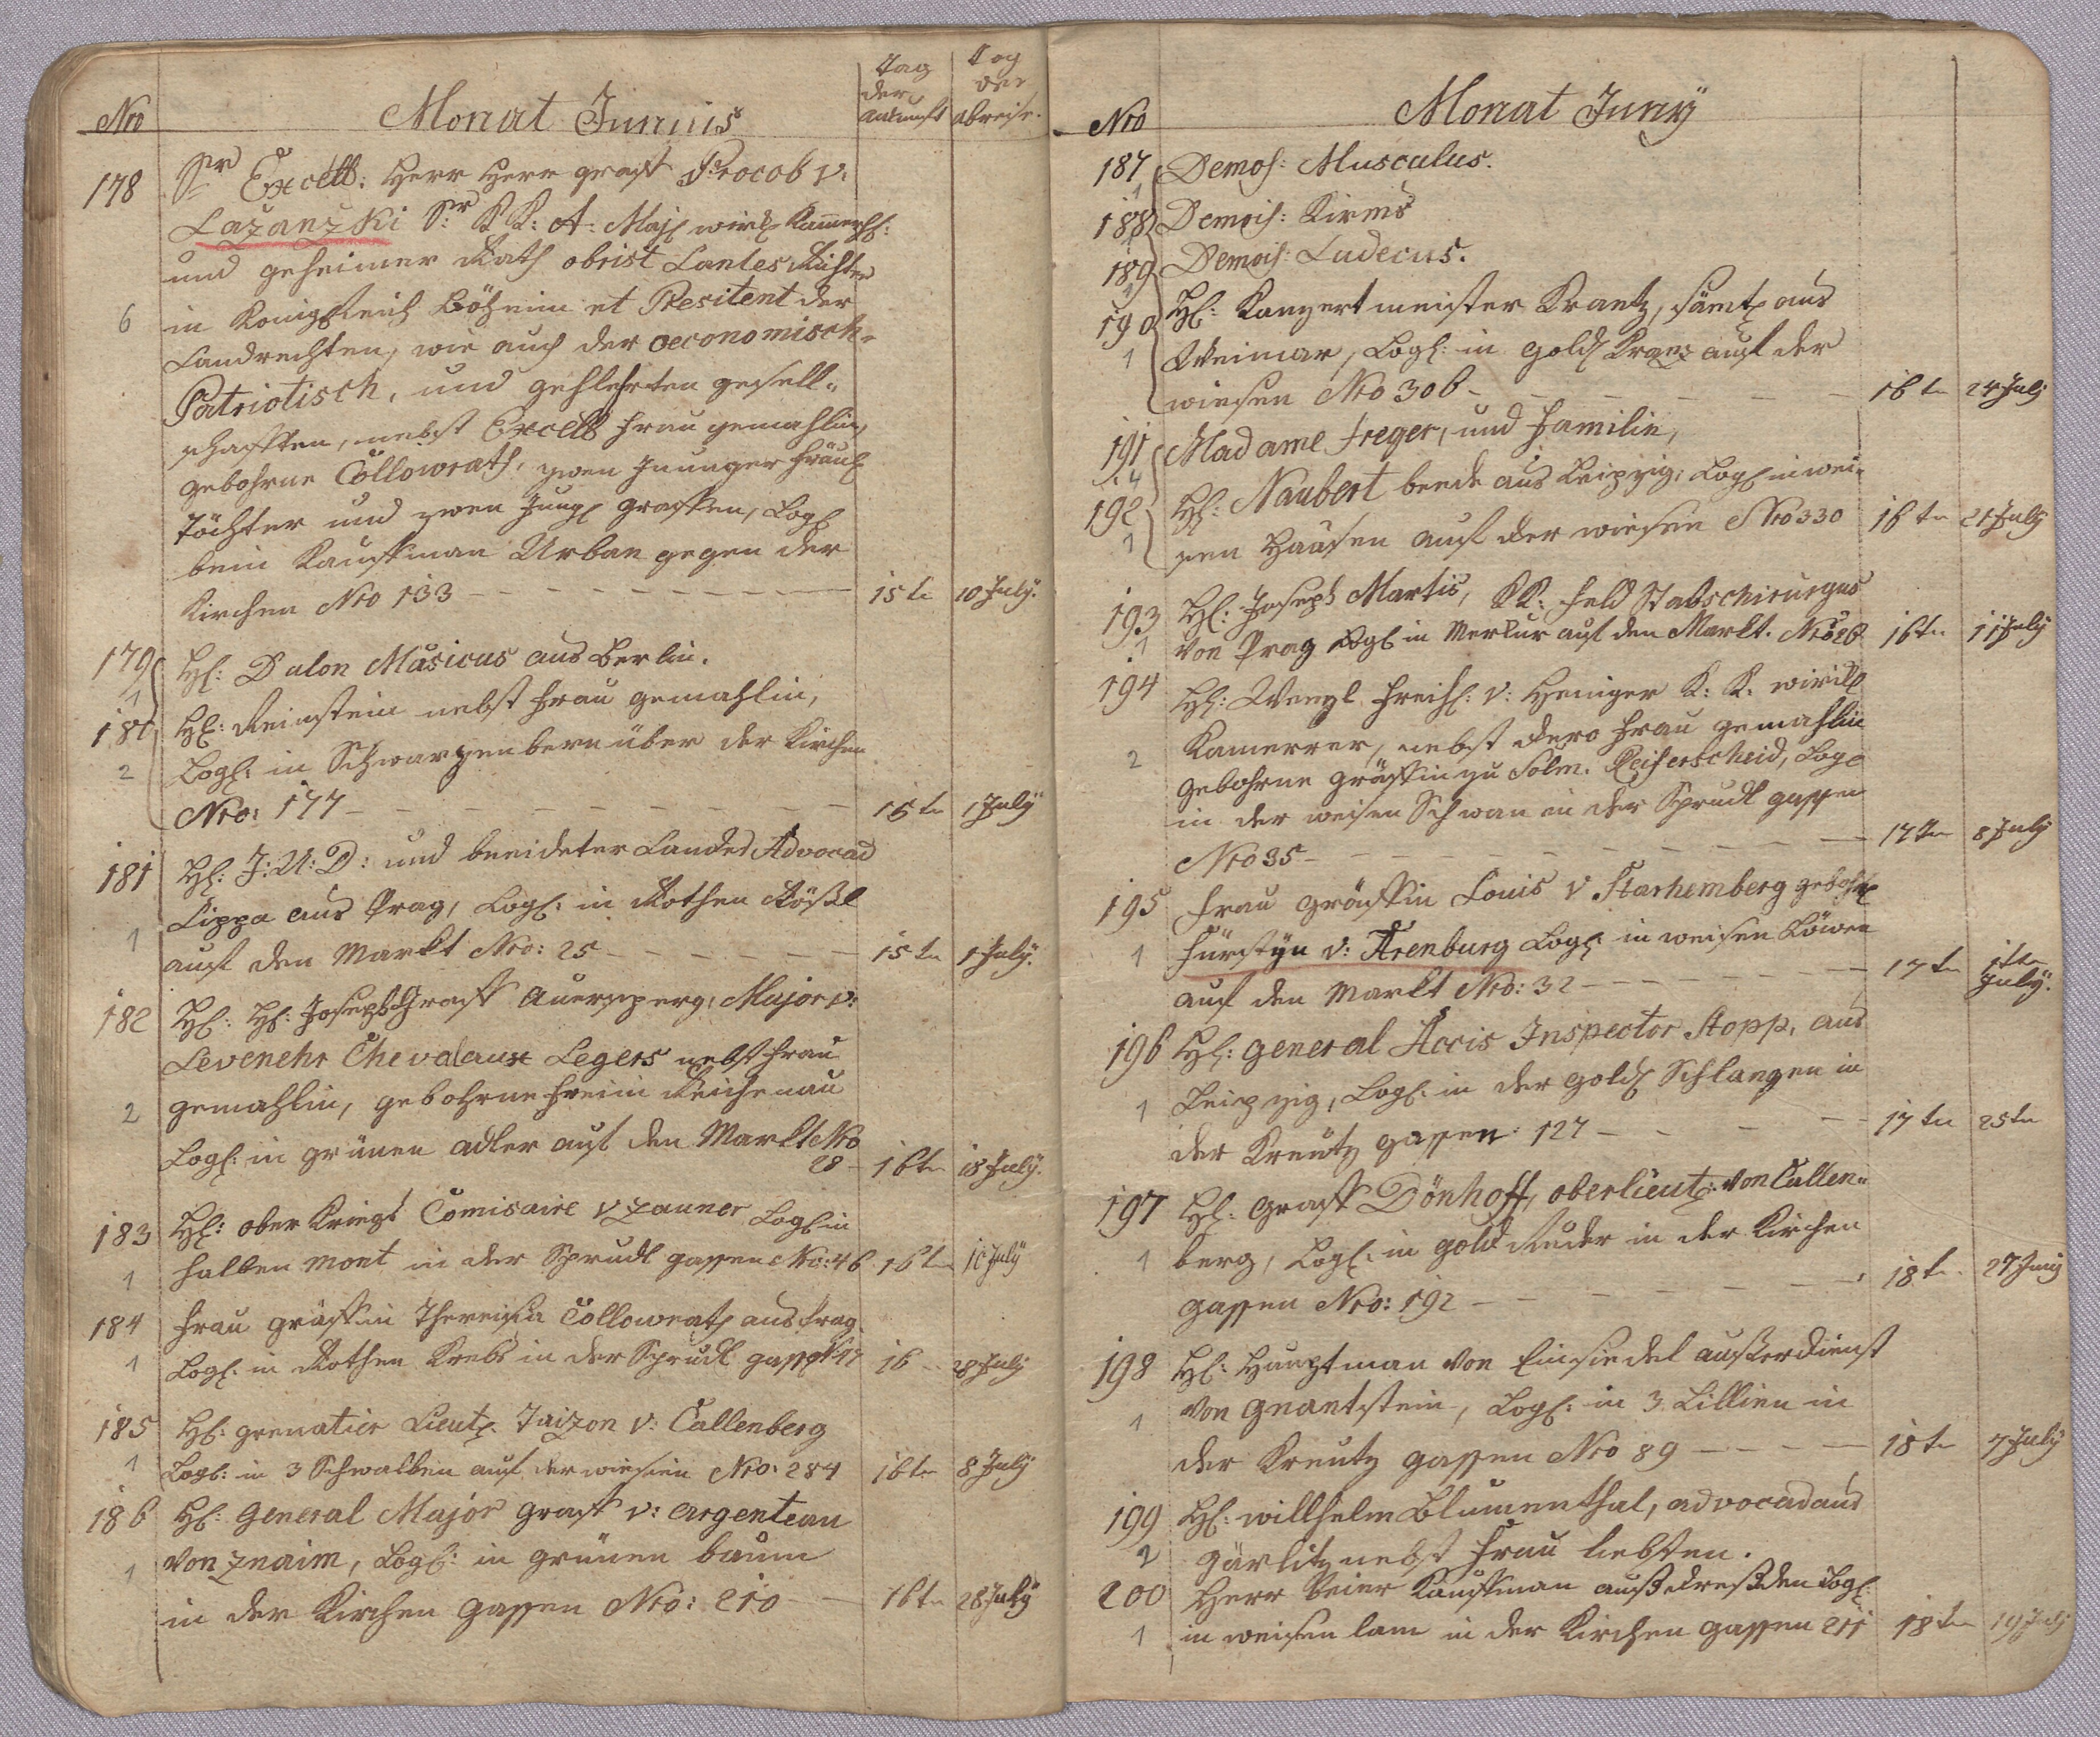 Nro
Monat Junius
Tag der ankunft
Tag der abreise.
178 Sr Excell: Herr Herr graff Procob v:
Lazanzki Sr: KK: A: Maj: wirkl Kamerh:
und geheimer Rath obrist Lantes Richter
6 in Königreich Böheim et Presitent der
Landrechten, wie auch der oeconomisch-
Patriotisch, und gehlehrten gesell-
schafften, nebst Excell frau gemahlin,
gebohrne Collowrath, zwen Junger fräul
töchter und zwen Jung graffen, Logl
beim Kauffman Urban gegen der
Kirchen Nro 133 15te 10 July.
179 Hl: Dulon Musicus aus Berlin.
1
180 Hl: Reinstein nebst frau gemahlin,
2 Logl: in Schwarzenbern über der Kirchen
Nro: 177 15te 1 July
181 Hl: J:U:D: und beeideter Landes Advocad
Lippa aus Prag, Logl: in Rothen Rößl
1 auf den Markt Nro: 25 15te 1 July.
182 Hl: Hl: Joseph Graff Auersperg, Major v:
Levenehr Chevalaux Legers nebst frau
2 gemahlin, gebohrne freiin Reichenau
Logl: in grünen adler auf den Markt Nro
28 16te 18 July.
183 Hl: ober Kriegs Comisaire v Zauner Logl in
1 halben mont in der Sprudl gassen Nro: 46 16te 10 July
184 frau gräffin Theresia Collowrath aus Prag.
1 Logl. in Rothen Krebs in der Sprudl gassen 47 16 28 July
185 Hl: grenatier Lieut: Taizon v: Callenberg
1 Logl: in 3 Schwalben auf der wiesen Nro: 284 16te 8 July
186 Hl: General Major graff v: Argenteau
1 von Znaim, Logl: in grünen baum
in der Kirchen gassen Nro: 210 16te 28 July
Nro
Monat Juny
187 Demos: Musculus.
1
188 Demois: Kirms
1
189 Demois: Ludecus.
1
190 Hl: Konzertmeister Krantz, sämtl aus
1 Weimar, Logl: in gold Kranz auf der
wiesen Nro 306 16te 24 July
191 Madame Freger, und familie,
4
192 Hl: Naubert beede aus Leipzig, Logl in wei-
1 sen Haasen auf der wiesen Nro 330 16te 21 July
193 Hl: Joseph Martis, KK: feld Stabschirurgus
1 von Prag Logl in Merkur auf den Markt. Nro 26 16te 11 July
194 Hl: Wenzl freih: v: Heniger K: K: wirkl
2 Kamerrer, nebst dero frau gemahlin
gebohrne gräffin zu Solm. Reiferscheid, Logl
in der weisen Schwan in der Sprudl gassen
Nro 35 17te 8 July
195 frau gräffin Louis v Starhemberg gebohrl
1 fürstyn v: Arenburg Logl: in weisen Löwen
auf den Markt Nro: 32 17te 1ten July.
196 Hl: general Accis Inspector Stopp, aus
1 Leipzig, Logl. in der gold Schlangen in
der Kreutz gassen 127 17te 25te
197 Hl: graff Dönhoff, oberlieut: von Callen-
1 berg, Logl. in gold Ruder in der Kirchen
gassen Nro: 192 18te 27 Juny
198 Hl: Hauptman von Einsiedel ausserdienst
1 von gnantstein, Logl: in 3 Lillien in
der Kreutz gassen Nro 89 18te 7 July
199 Hl: willhelm Blumenthal, advocad aus
2 gärlitz nebst frau liebsten.
200 Herr Beier Kauffman aus dresden Logl:
1 in weisen lam in der Kirchen gassen 211 18te 19 July